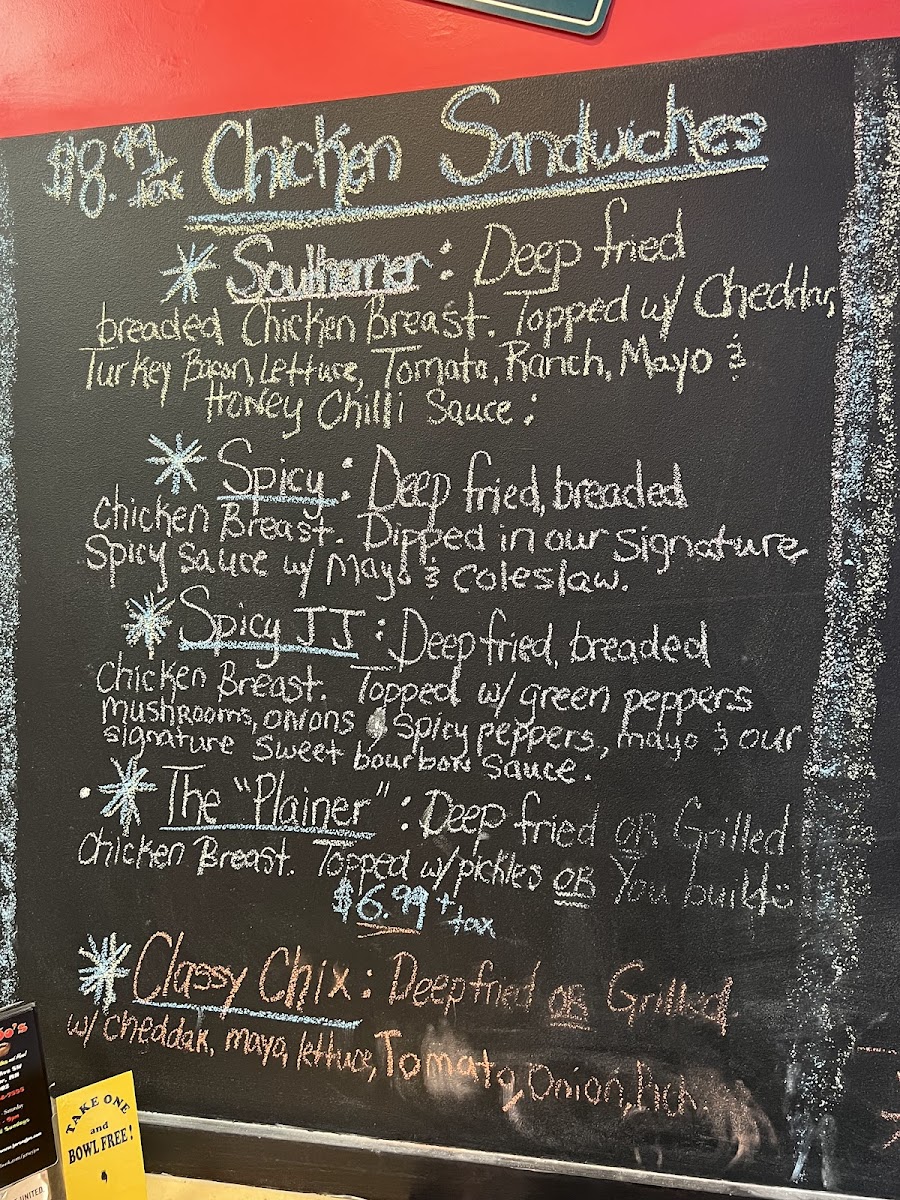 $8.99 + tax Chicken Sandwiches
* Southerner: Deep fried
breaded Chicken Breast. Topped w/ Cheddar,
Turkey Bacon, Lettuce, Tomato, Ranch, Mayo &
Honey Chilli Sauce:
* Spicy: Deep fried, breaded
Chicken Breast. Dipped in our signature
Spicy sauce w/ Mayo & coleslaw.
* Spicy JJ: Deep fried, breaded
Chicken Breast. Topped w/ green peppers
mushrooms, onions, spicy peppers, mayo & our
signature sweet bourbon sauce.
* The "Plainer": Deep fried OR Grilled
Chicken Breast. Topped w/ pickles OR You build
$6.99 + tax
* Classy Chix: Deep fried OR Grilled
w/ cheddar, mayo, lettuce, Tomato, Onion,
TAKE ONE
and
BOWL FREE!